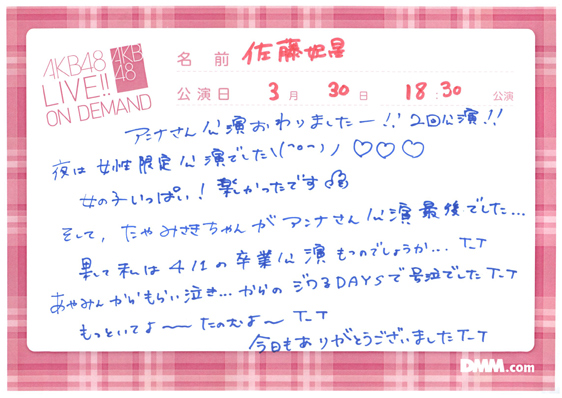 AKB48
LIVE!!
ON DEMAND
AKB
48
名前 佐藤妃星
公演日 3月30日 18:30 公演
アンナさん公演おわりましたー!! 2回公演!!
夜は女性限定公演でした\(^o^)/ ♡♡♡
女の子いっぱい! 楽しかったです
そして、たやみさきちゃんがアンナさん公演最後でした...
果して私は4/1の卒業公演もつのでしょうか... T_T
あやみんからもらい泣き...からのジワるDAYSで号泣でしたT_T
もっといてよ〜〜たのむよ〜 T_T
今日もありがとうございましたT_T
DMM.com